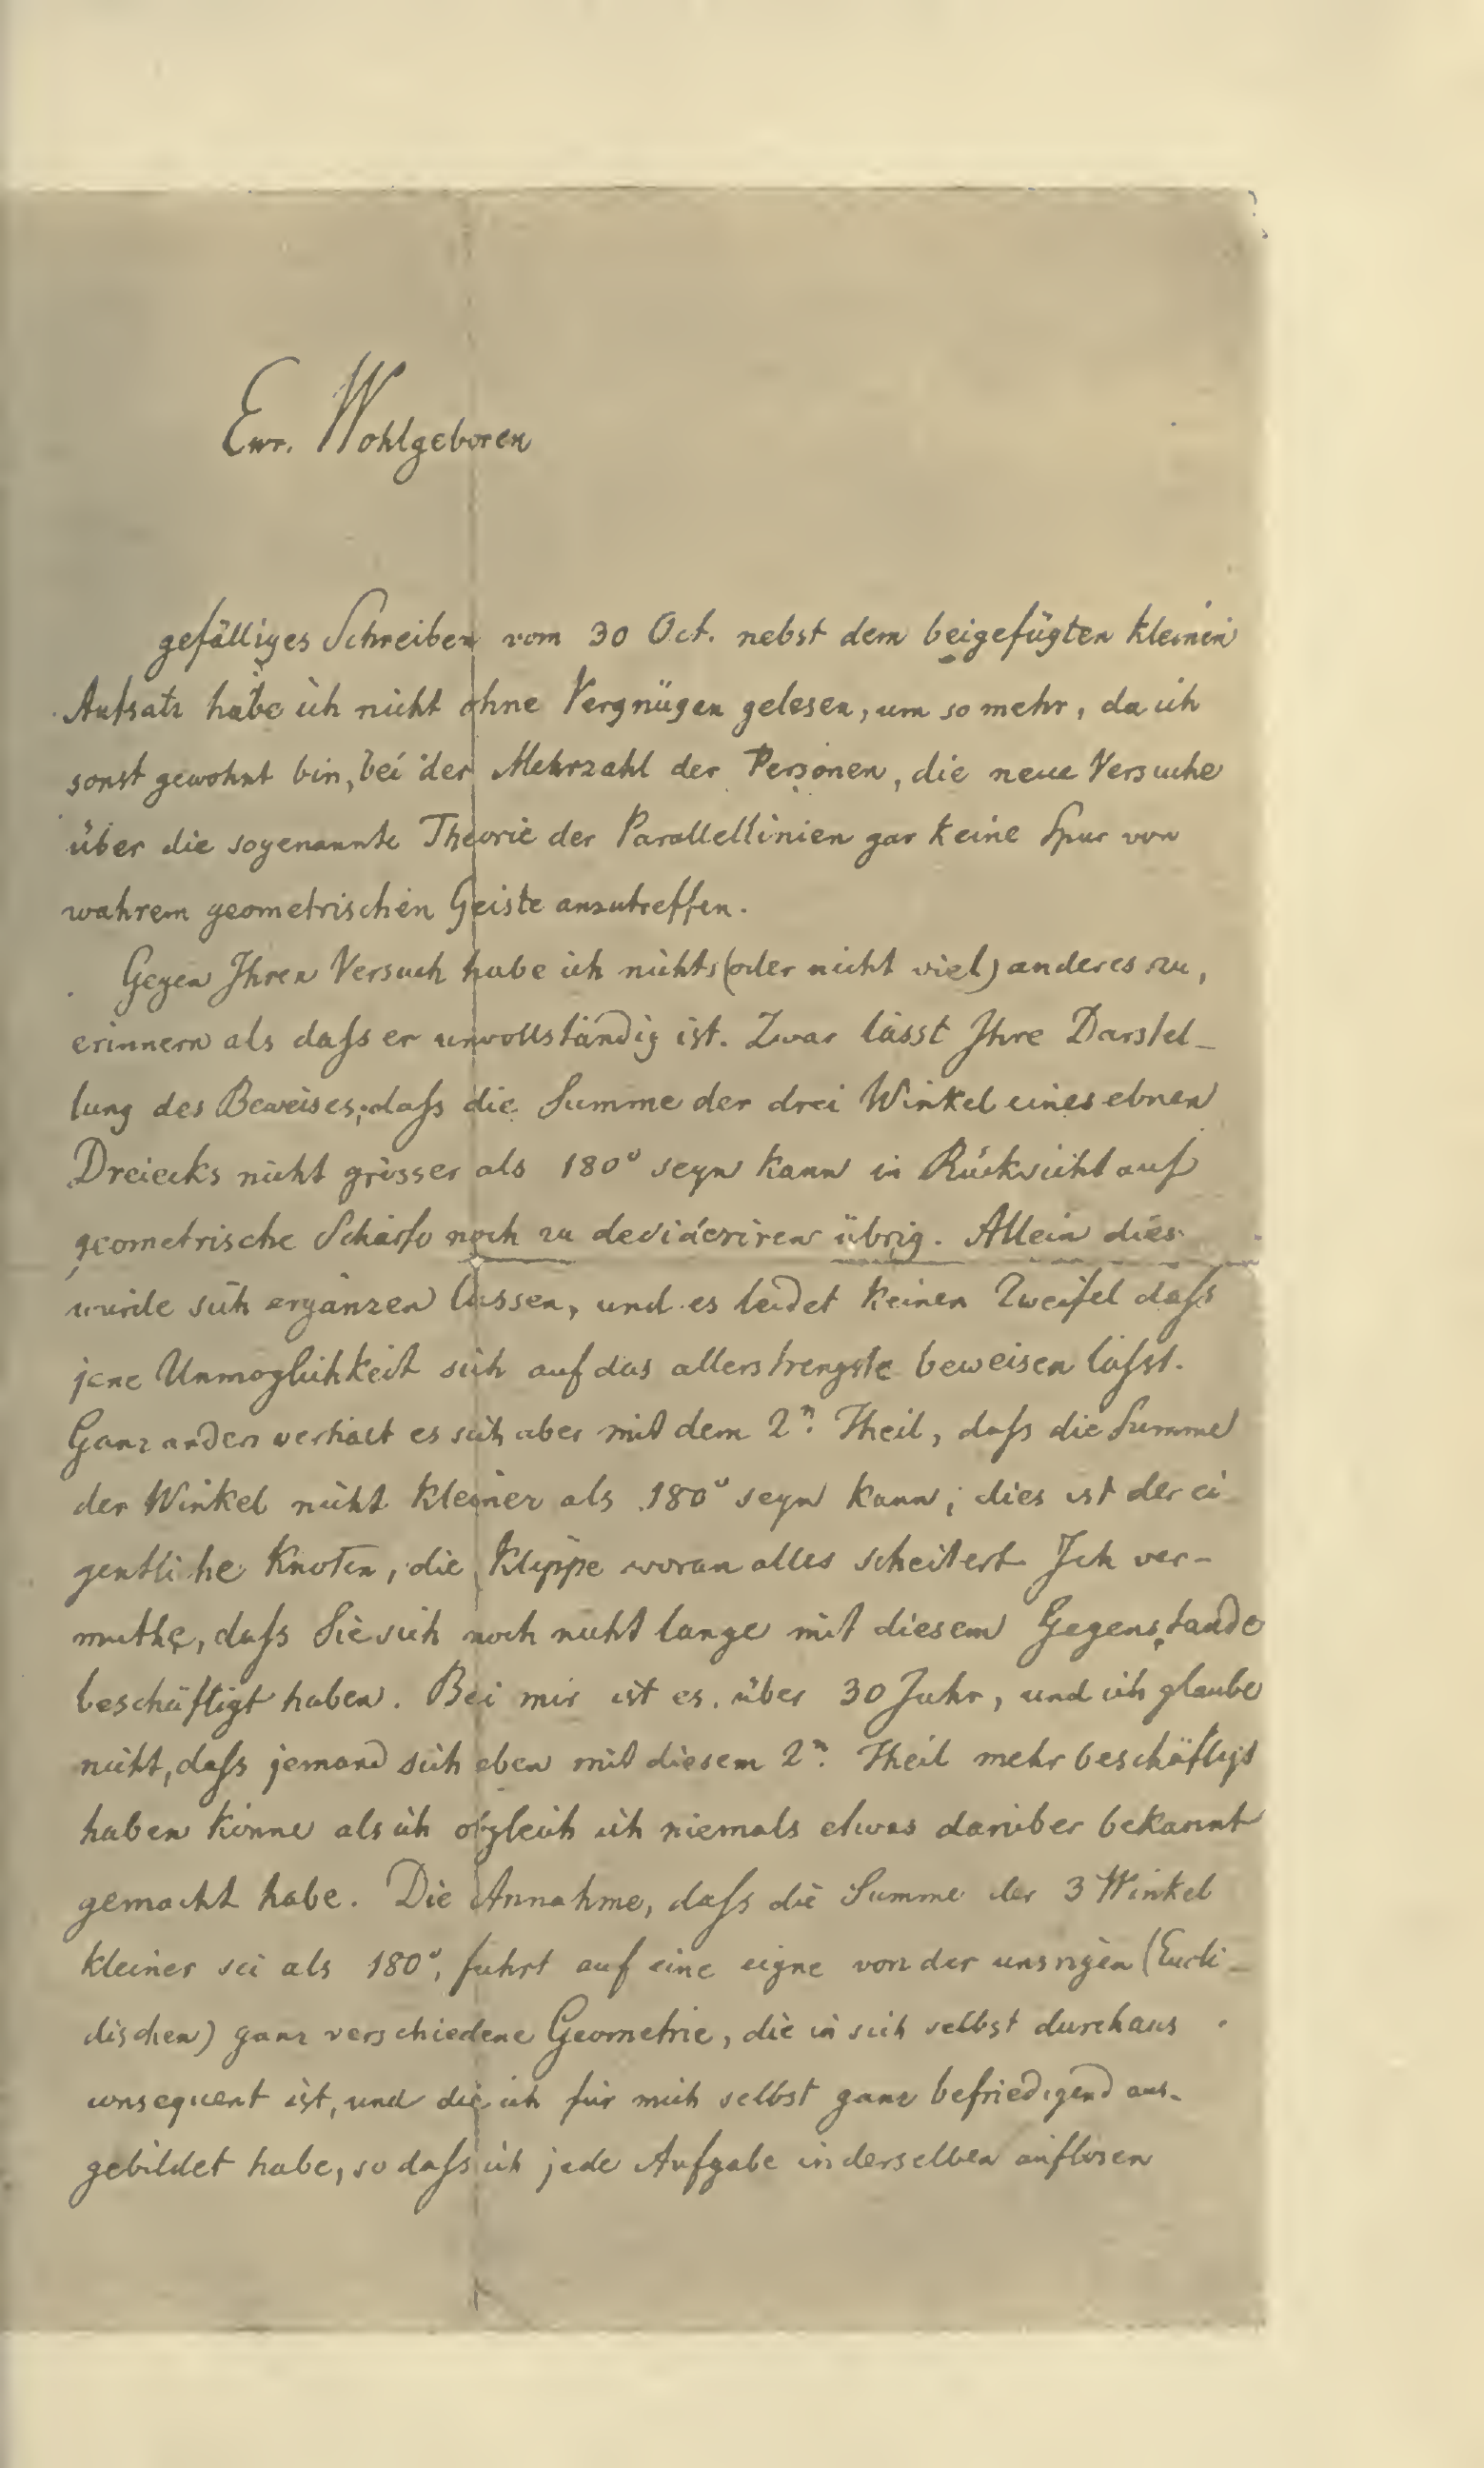 Ewr. Wohlgeboren
gefälliges Schreiben vom 30 Oct. nebst dem beigefügten kleinen
Aufsatz habe ich nicht ohne Vergnügen gelesen, um so mehr, da ich
sonst gewohnt bin, bei der Mehrzahl der Personen, die neue Versuche
über die sogenannte Theorie der Parallellinien gar keine Spur von
wahrem geometrischen Geiste anzutreffen.
Gegen Ihren Versuch habe ich nichts (oder nicht viel) anderes zu,
erinnern als daſs er unvollständig ist. Zwar lässt Ihre Darstel-
lung des Beweises, daſs die Summe der drei Winkel eines ebnen
Dreiecks nicht grösser als 180° seyn kann in Rücksicht auf
geometrische Schärfe noch zu desideriren übrig. Allein dies
würde sich ergänzen lassen, und es leidet keinen Zweifel daſs
jene Unmöglichkeit sich auf das allerstrengste beweisen läſst.
Ganz anders verhält es sich aber mit dem 2n. Theil, daſs die Summe
der Winkel nicht kleiner als 180° seyn kann; dies ist der ei
gentliche Knoten, die Klippe woran alles scheitert. Ich ver-
muthe, daſs Sie sich noch nicht lange mit diesem Gegenstande
beschäftigt haben. Bei mir ist es über 30 Jahr, und ich glaube
nicht, daſs jemand sich eben mit diesem 2n. Theil mehr beschäftigt
haben könne als ich obgleich ich niemals etwas darüber bekannt
gemacht habe. Die Annahme, daſs die Summe der 3 Winkel
kleiner sei als 180°, führt auf eine eigne von der unsrigen (Eucli-
dischen) ganz verschiedene Geometrie, die in sich selbst durchaus
consequent ist, und die ich für mich selbst ganz befriedigend aus-
gebildet habe, so daſs ich jede Aufgabe in derselben auflösen